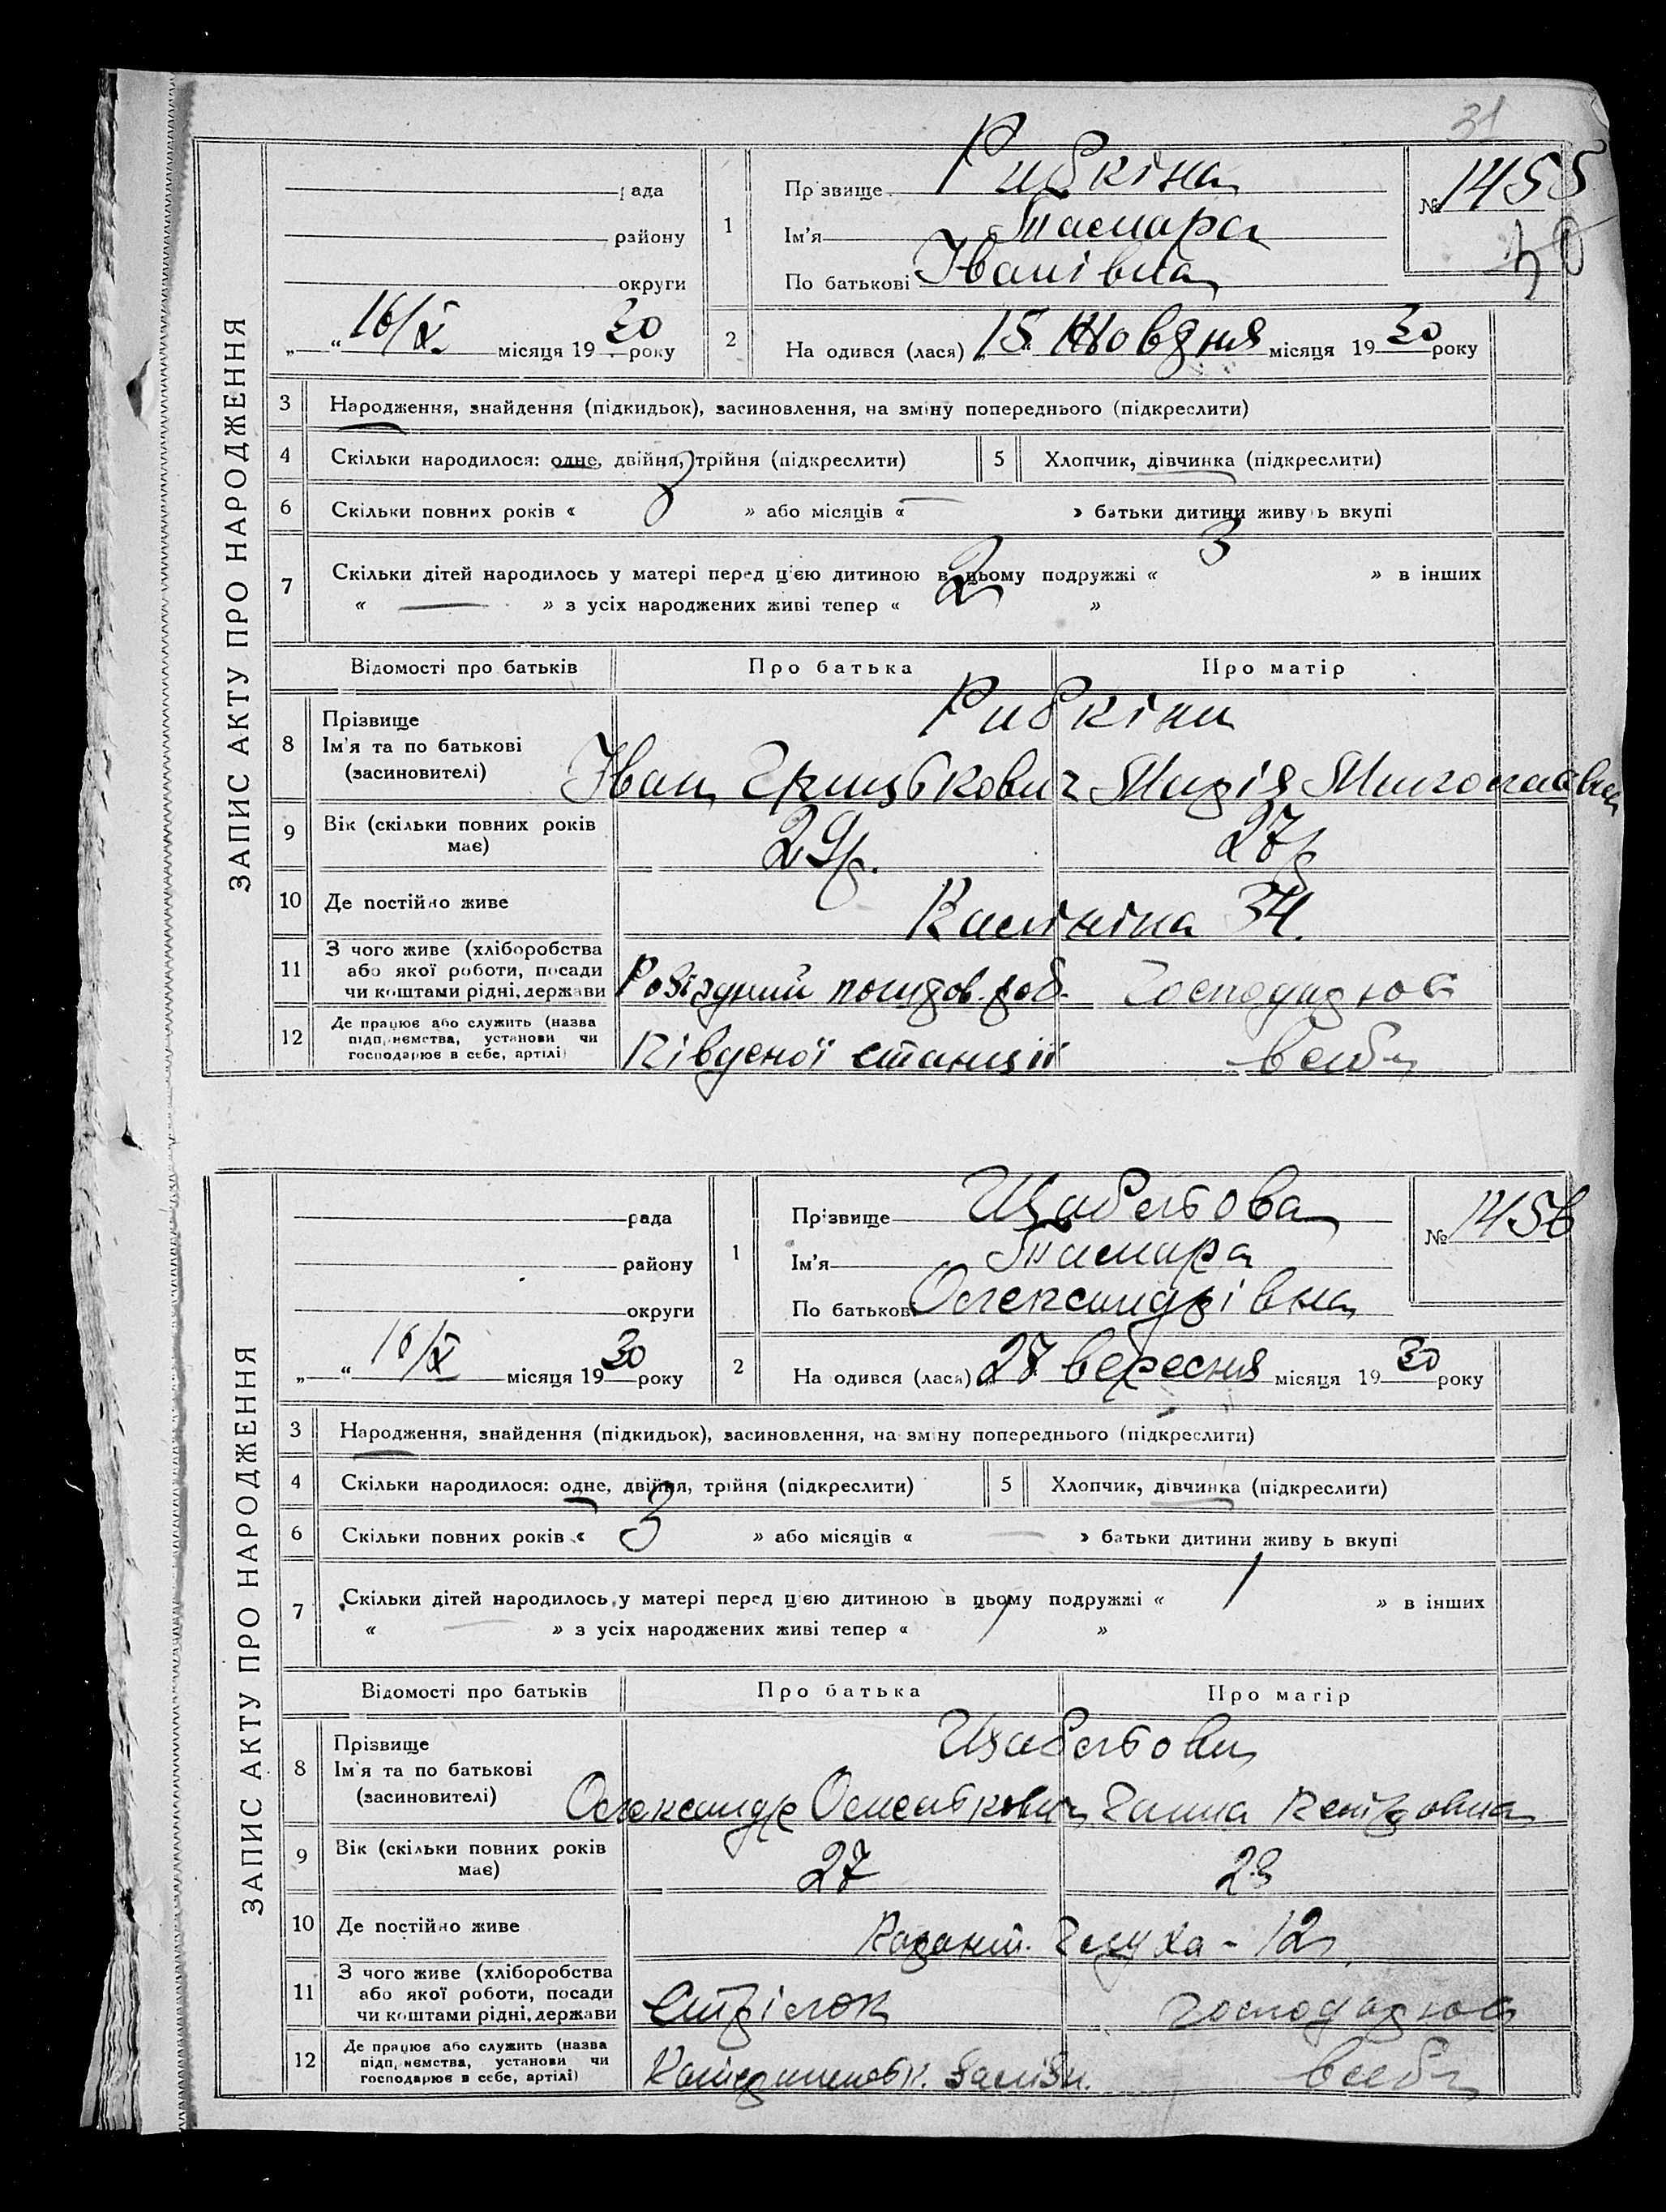 31
ЗАПИС АКТУ ПРО НАРОДЖЕННЯ
рада
району
округи
„ “ 16/X місяця 1930 року
1 Прізвище Рибкіна
Ім'я Тамара
По батькові Іванівна
№ 1455
2 На одився (лася) 15 Жовдня місяця 1930 року
3 Народження, знайдення (підкидьок), засиновлення, на зміну попереднього (підкреслити)
4 Скільки народилося: одне, двійня, трійня (підкреслити)
5 Хлопчик, дівчинка (підкреслити)
6 Скільки повних років « » або місяців « — » батьки дитини живу ь вкупі
7 Скільки дітей народилось у матері перед цією дитиною в цьому подружжі « 3 » в інших
« — » з усіх народжених живі тепер « 2 »
Відомості про батьків Про батька Про матір
8 Прізвище Рибкіни
Ім'я та по батькові Іван Грицькович Марія
(засиновителі)
9 Вік (скільки повних років має) 29р. 27р
10 Де постійно живе Калініна 34.
11 З чого живе (хліборобства або якої роботи, посади чи коштами рідні, держави Господарює
12 Де працює або служить (назва підп, немства, установи чи господарює в себе, артілі) Південої станції в себе
ЗАПИС АКТУ ПРО НАРОДЖЕННЯ
рада
району
округи
„ “ 16/X місяця 1930 року
1 Прізвище Щабельова
Ім'я Тамара
По батькові Олександрівна
№ 1456
2 На одився (лася) 27 вересня місяця 1930 року
3 Народження, знайдення (підкидьок), засиновлення, на зміну попереднього (підкреслити)
4 Скільки народилося: одне, двійня, трійня (підкреслити)
5 Хлопчик, дівчинка (підкреслити)
6 Скільки повних років « 3 » або місяців « — » батьки дитини живу ь вкупі
7 Скільки дітей народилось у матері перед цією дитиною в цьому подружжі « 1 » в інших
« — » з усіх народжених живі тепер « 1 »
Відомості про батьків Про батька Про матір
8 Прізвище Щабельови
Ім'я та по батькові Олександр Омелькович Ганна
(засиновителі)
9 Вік (скільки повних років має) 27 23
10 Де постійно живе Глуха - 12
11 З чого живе (хліборобства або якої роботи, посади чи коштами рідні, держави Стрілок господарює
12 Де працює або служить (назва підп, немства, установи чи господарює в себе, артілі) залізн. в себе